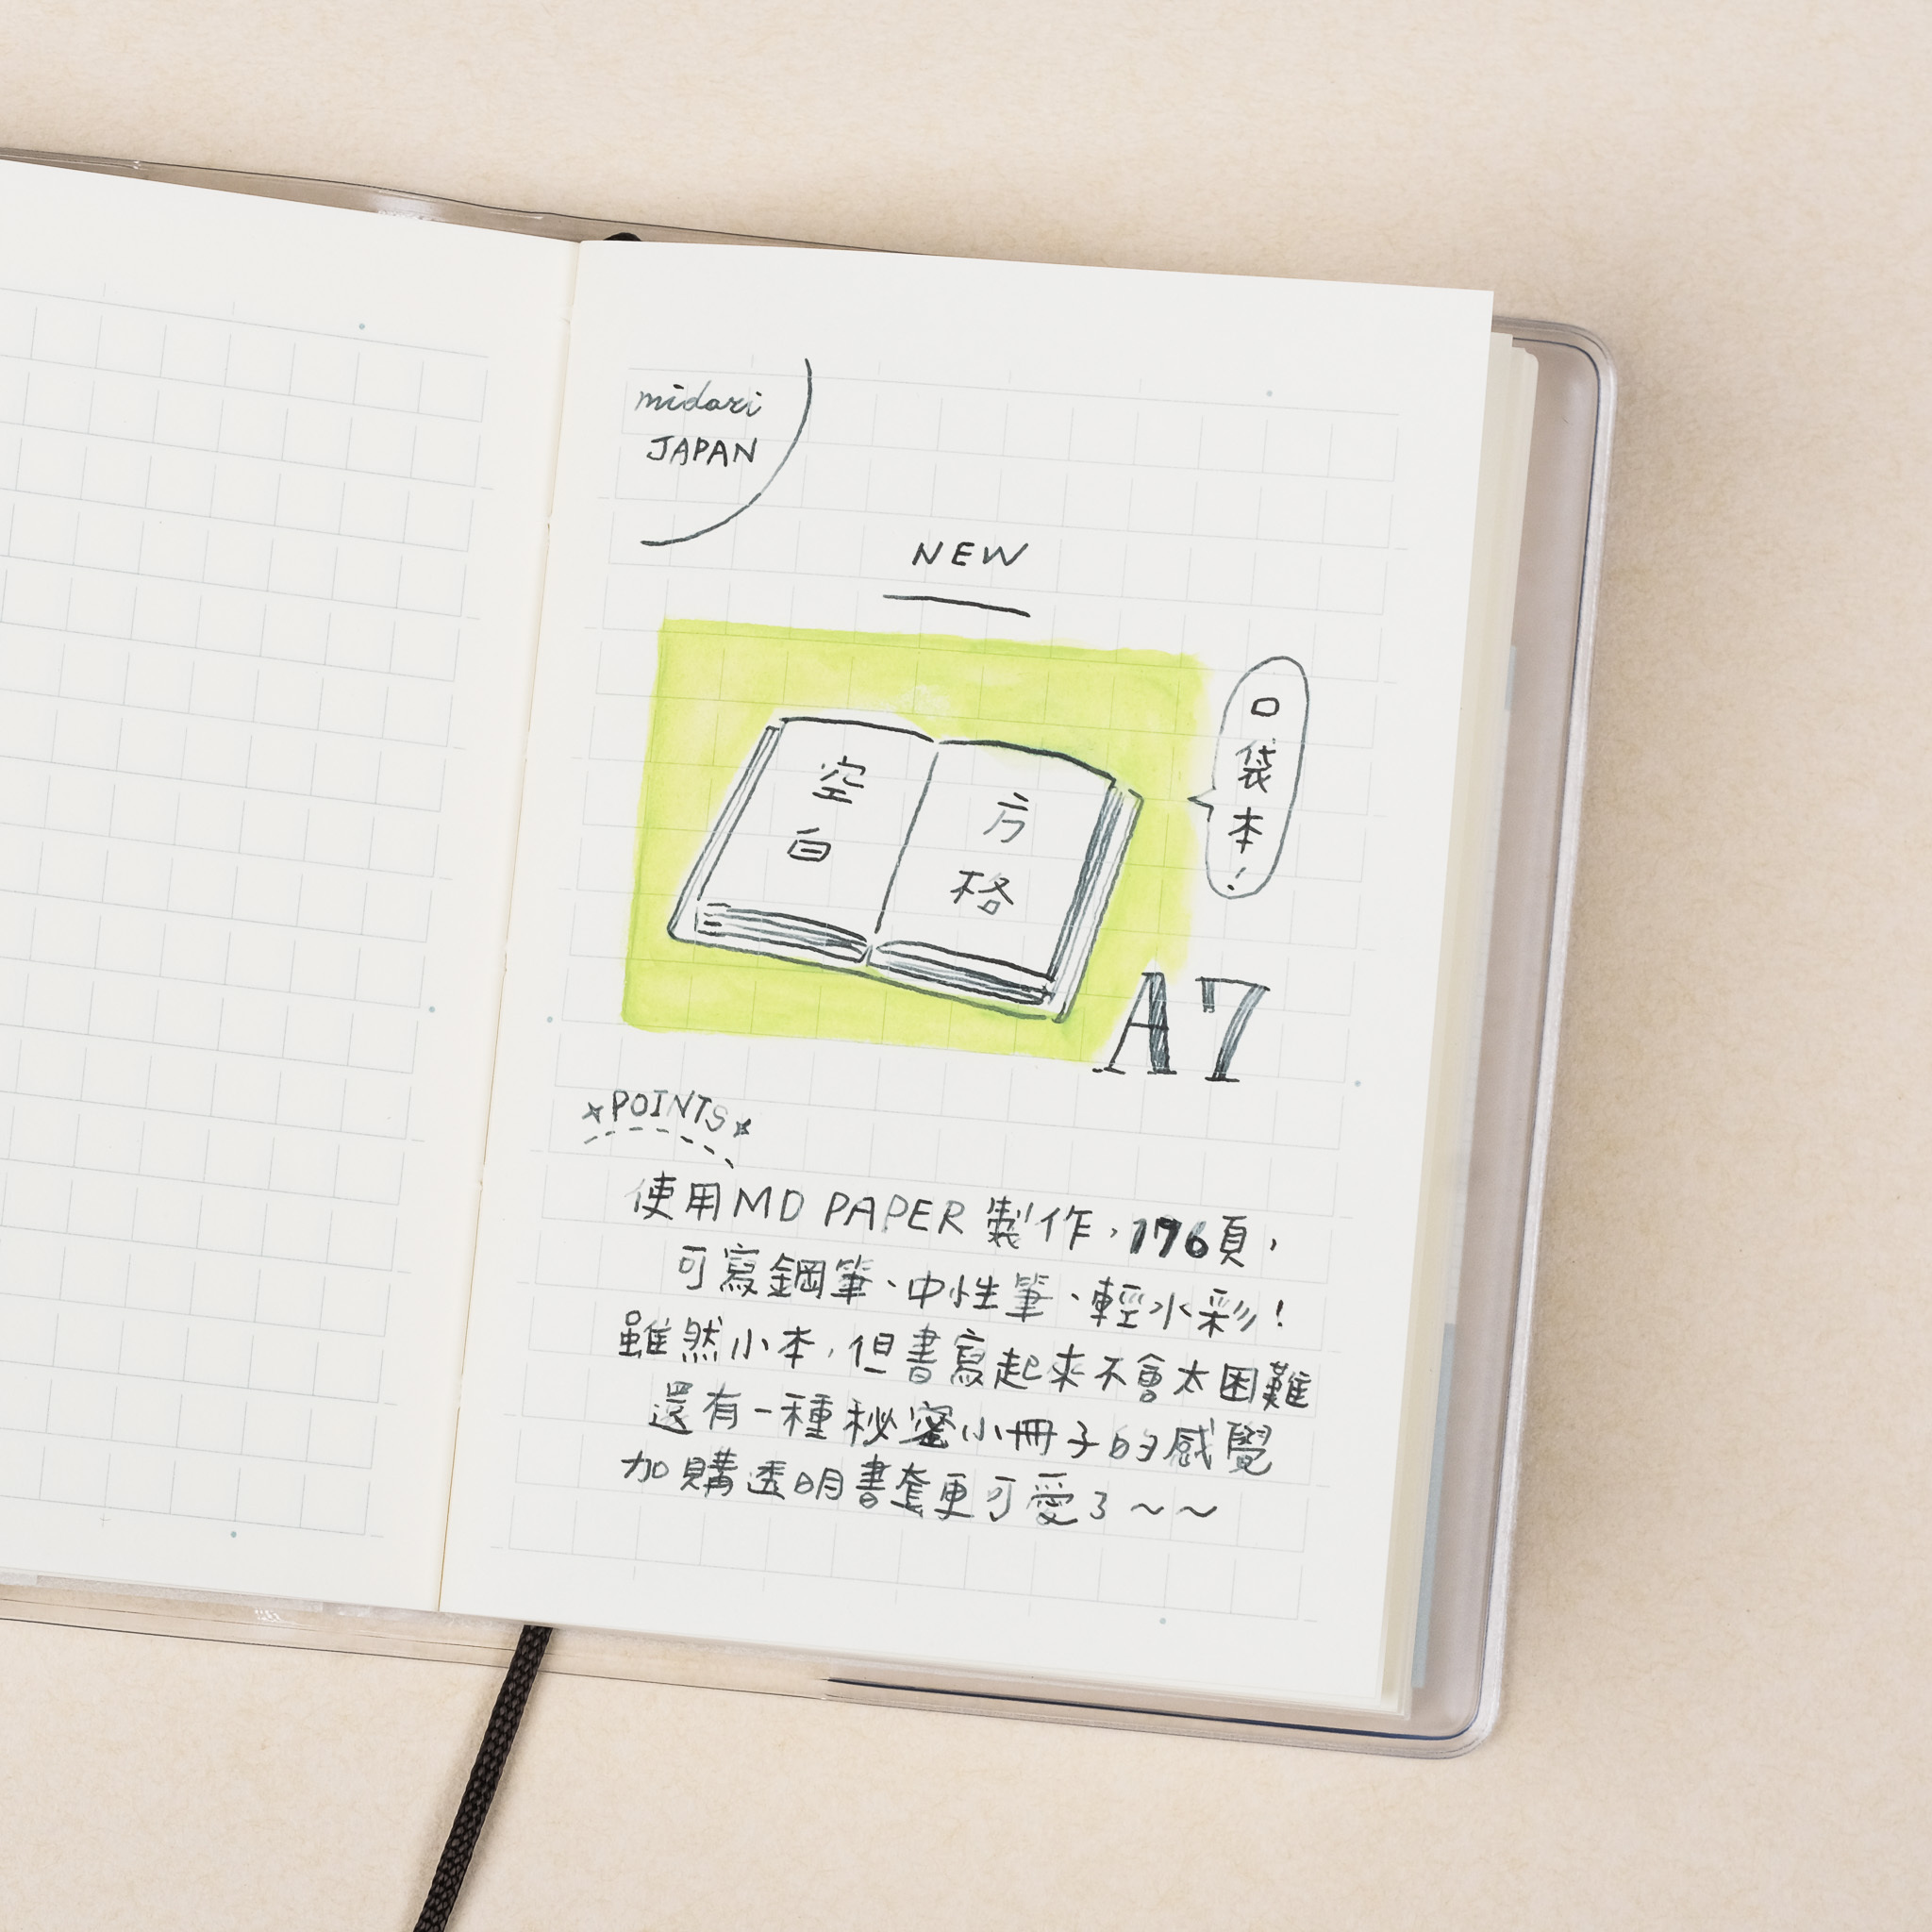 midori
JAPAN
NEW
空白
方格
口袋本!
A7
POINTS
使用MD PAPER 製作，176頁，
可寫鋼筆、中性筆、輕水彩！
雖然小本，但書寫起來不會太困難
還有一種秘密小冊子的感覺
加購透明書套更可愛了～～